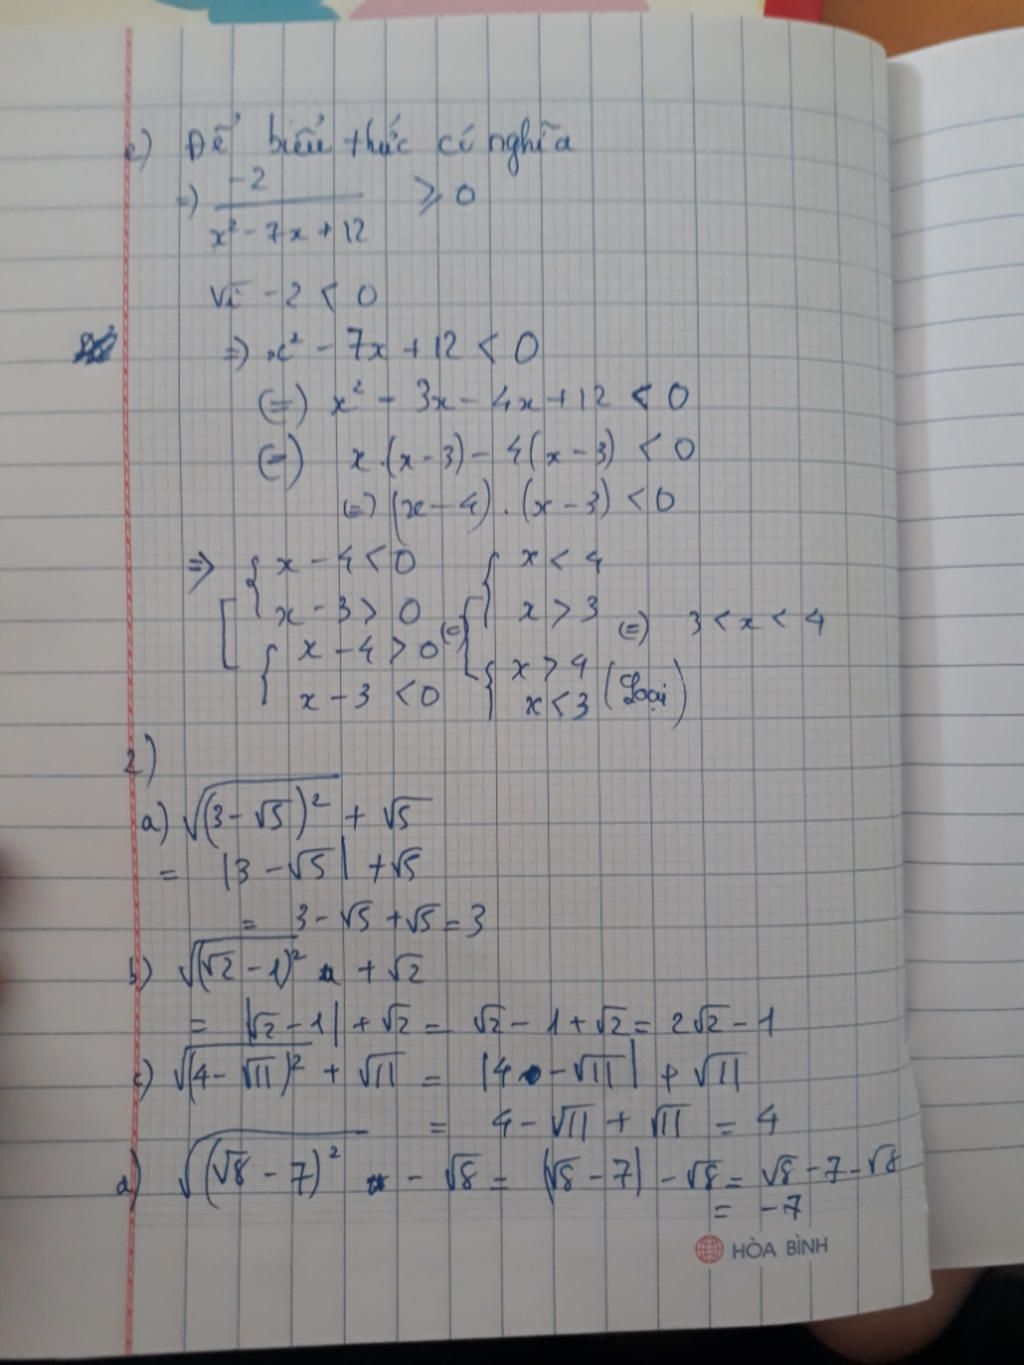 c) Để biểu thức có nghĩa
=) -2 / (x² - 7x + 12) ≥ 0
Vì -2 < 0
=) x² - 7x + 12 < 0
(=) x² - 3x - 4x + 12 < 0
(=) x.(x-3) - 4(x-3) < 0
(=) (x-4).(x-3) < 0
=> [ { x - 4 < 0 ; x - 3 > 0 (=) [ { x < 4 ; x > 3 (=) 3 < x < 4
{ x - 4 > 0 ; x - 3 < 0 { x > 4 ; x < 3 (Loại)
2)
a) √(3-√5)² + √5
= |3-√5| + √5
= 3-√5 + √5 = 3
b) √(√2-1)² + √2
= |√2-1| + √2 = √2-1+√2 = 2√2-1
c) √(4-√11)² + √11 = |4-√11| + √11
= 4-√11 + √11 = 4
d) √(√8-7)² - √8 = |√8-7| - √8 = √8-7-√8
= -7
HÒA BÌNH